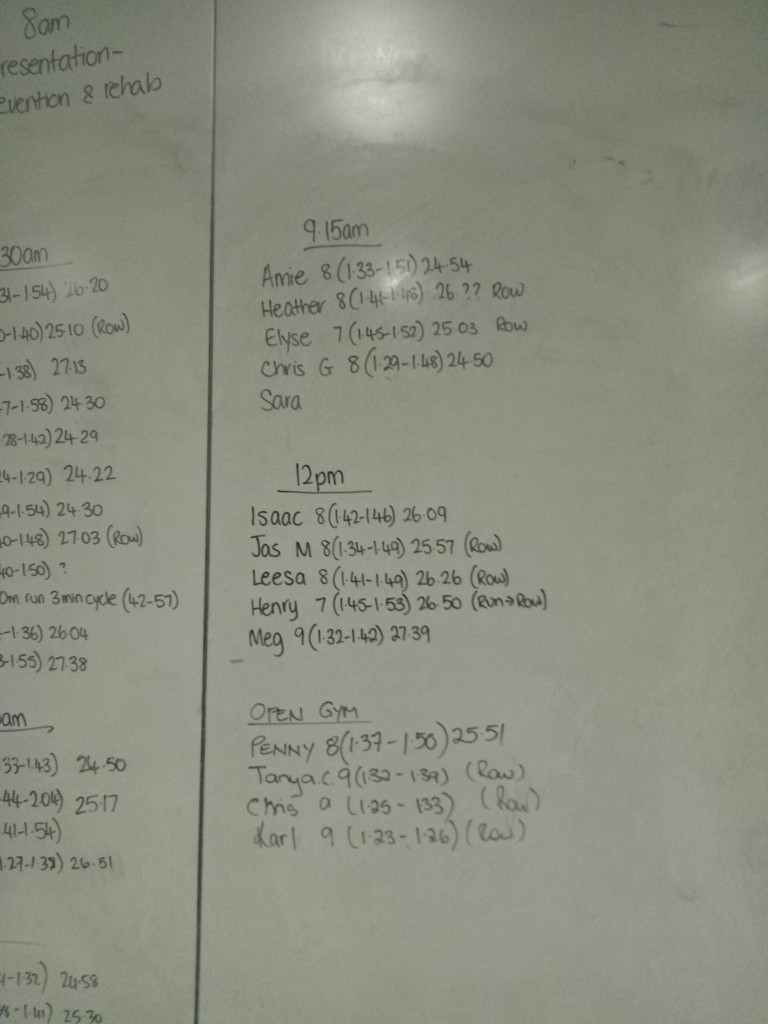 8am
resentation-
evention & rehab
30am
31-1.54) 26.20
0-1.40) 25.10 (Row)
-1.38) 27.13
7-1.58) 24.30
28-1.42) 24.29
4-1.29) 24.22
9-1.54) 24.30
40-1.48) 27.03 (Row)
40-1.50) ?
0m run 3 min cycle (42-57)
-1.36) 26.04
3-1.55) 27.38
am
33-1.43) 24.50
44-2.04) 25.17
.41-1.54)
1.27-1.38) 26.51
4-1.32) 24.58
-1.41) 25.30
9.15am
Amie 8 (1.33-1.51) 24.54
Heather 8 (1.41-1.48) 26.?? Row
Elyse 7 (1.45-1.52) 25.03 Row
Chris G 8 (1.29-1.48) 24.50
Sara
12pm
Isaac 8 (1.42-1.46) 26.09
Jas M 8 (1.34-1.49) 25.57 (Row)
Leesa 8 (1.41-1.49) 26.26 (Row)
Henry 7 (1.45-1.53) 26.50 (Run→Row)
Meg 9 (1.32-1.42) 27.39
OPEN GYM
PENNY 8 (1.37-1.50) 25.51
Tanya.C. 9 (1.32-1.39) (Row)
Chris (1.25-1.33) (Row)
Karl 9 (1.23-1.26) (Row)